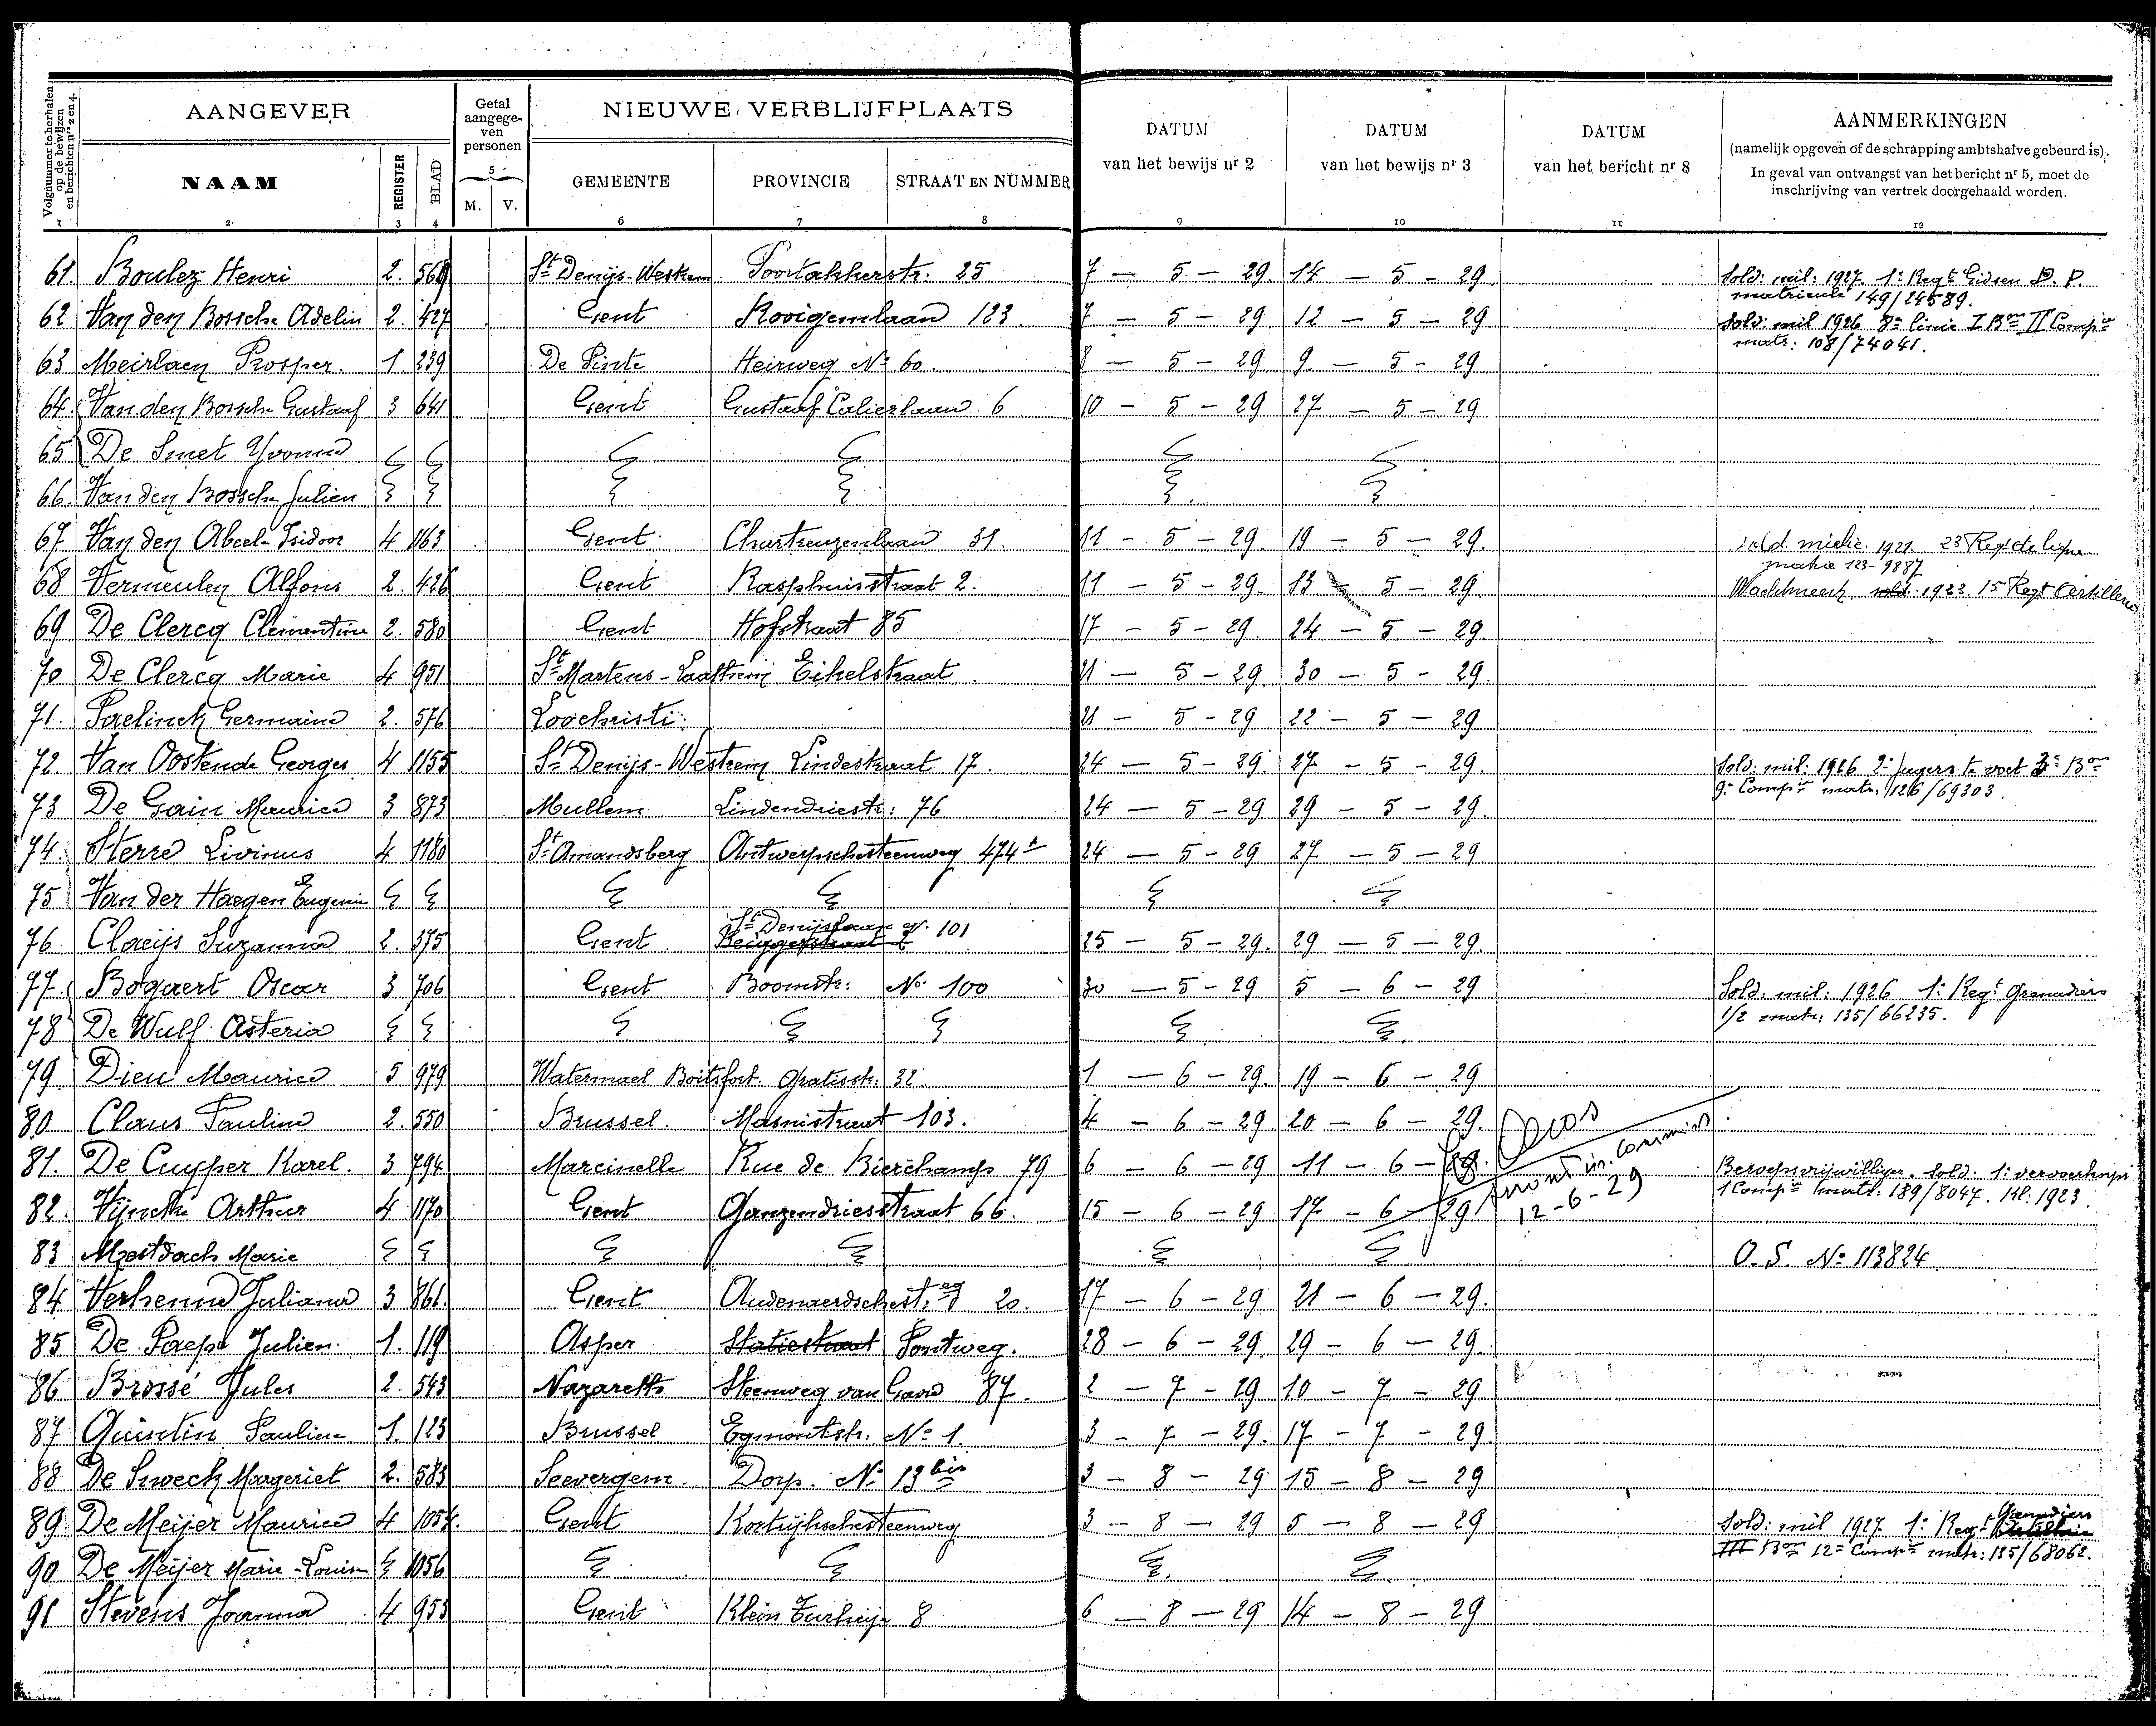 Volgnummer te herhalen op de bewijzen en berichten nrs 2 en 4.
AANGEVER
Getal aangege-ven personen
NIEUWE VERBLIJFPLAATS
DATUM van het bewijs nr 2
DATUM van het bewijs nr 3
DATUM van het bericht nr 8
AANMERKINGEN
(namelijk opgeven of de schrapping ambtshalve gebeurd is).
In geval van ontvangst van het bericht nr 5, moet de
inschrijving van vertrek doorgehaald worden.
NAAM REGISTER BLAD M. V. GEMEENTE PROVINCIE STRAAT EN NUMMER
1 2 3 4 5 6 7 8 9 10 11 12
61. Boulez Henri 2. 560 St Denijs-Westrem Poortakkerstr: 25 7 — 5 — 29. 14 — 5 — 29 Sold: mil: 1927. 1e Regt Gidsen P. P.
matricule 149/24589.
62 Van den Bossche Adelin 2. 427 Gent Rooigemlaan 123. 7 — 5 — 29 12 — 5 — 29 Sold: mil 1926 8e linie I Bon II Compie
matr: 108/74041.
63 Meirlaen Prosper. 1. 239 De Pinte Heirweg No 60. 8 — 5 — 29 9. — 5 — 29
64. Van den Bossche Gustaaf 3 641 Gent Gustaaf Callierlaan 6 10 — 5 — 29 27 — 5 — 29
65 De Smet Yvonne
66. Van den Bossche Julien
67 Van den Abeele Isidoor 4 1163 Gent Chartreuzenlaan 31. 11 — 5 — 29. 19 — 5 — 29. sold. milie. 1921. 23 Regt de ligne
matre 123-9887
68 Vermeulen Alfons 2. 426 Gent Rasphuisstraat 2. 11 — 5 — 29. 13 — 5 — 29. Wachtmeest. sold. 1923. 15 Regt Artillerie
69 De Clercq Clementine 2. 580 Gent Hofstraat 85 17 — 5 — 29. 24 — 5 — 29
70 De Clercq Marie 4 951 St Martens-Laathem Eikelstraat. 21 — 5 — 29. 30 — 5 — 29.
71. Paelinck Germaine 2. 576 Loochristi. 21 — 5 — 29 22 — 5 — 29
72. Van Oostende Georges 4 1155 St Denijs-Westrem Lindestraat 17. 24 — 5 — 29. 27 — 5 — 29. Sold: mil: 1926 2e Jagers te voet 3e Bon
9e Compie matr: 126/69303.
73 De Gain Maurice 3 873 Mullem Lindendriestr: 76 24 — 5 — 29 29 — 5 — 29.
74. Sterre Livinus 4 1180 St Amandsberg Antwerpschesteenweg 474A 24 — 5 — 29 27 — 5 — 29
75 Van der Haegen Eugenie
76 Claeijs Suzanna 2. 375 Gent St Denijslaan No 101 25 — 5 — 29. 29 — 5 — 29.
77. Bogaert Oscar 3 706 Gent Boomstr: No 100 30 — 5 — 29 5 — 6 — 29 Sold: mil: 1926 1e Regt Grenadiers
1/2 matr: 135/66235.
78 De Wulf Asteria
79 Dieu Maurice 5 979 Watermael Boitsfort. Gratiestr: 32. 1 — 6 — 29. 19 — 6 — 29
80 Claus Paulina 2. 550 Brussel. Masuistraat 103. 4 — 6 — 29 20 — 6 — 29.
81. De Cuyper Karel. 3 794 Marcinelle Rue de Bierchamp 79 6 — 6 — 29 11 — 6 — 29. Beroepsvrijwilliger. Sold. 1e vervoerkorps
1 Compie matr: 189/8047. Kl: 1923.
12-6-29
82. Vijncke Arthur 4 1170 Gent Ganzendriesstraat 66. 15 — 6 — 29 17 — 6 — 29
83 Mestdach Marie O. S. No 113824
84 Verhenne Juliana 3 861. Gent Audenaerdschest.eg 20. 17 — 6 — 29 21 — 6 — 29.
85 De Paepe Julien. 1. 119 Asper Statiestraat Pontweg. 28 — 6 — 29. 29 — 6 — 29.
86 Brossé Jules 2. 543 Nazareth Steenweg van Gavre 87. 2 — 7 — 29 10 — 7 — 29
87 Quintin Pauline 1. 123 Brussel Egmontstr. No 1. 3 — 7 — 29. 17 — 7 — 29.
88 De Sweeck Margeriet 2. 583 Seevergem. Dorp. No 13bis 3 — 8 — 29 15 — 8 — 29
89 De Meijer Maurice 4 1054. Gent Kortrijkschesteenweg 3 — 8 — 29 5 — 8 — 29 Sold: mil 1927 1e Regt Grenadiers
III Bon 12e Compie matr: 135/68062.
90 De Meijer Marie-Louise 1056
91 Stevens Joanna 4 953 Gent Klein Turkije 8 6 — 8 — 29 14 — 8 — 29